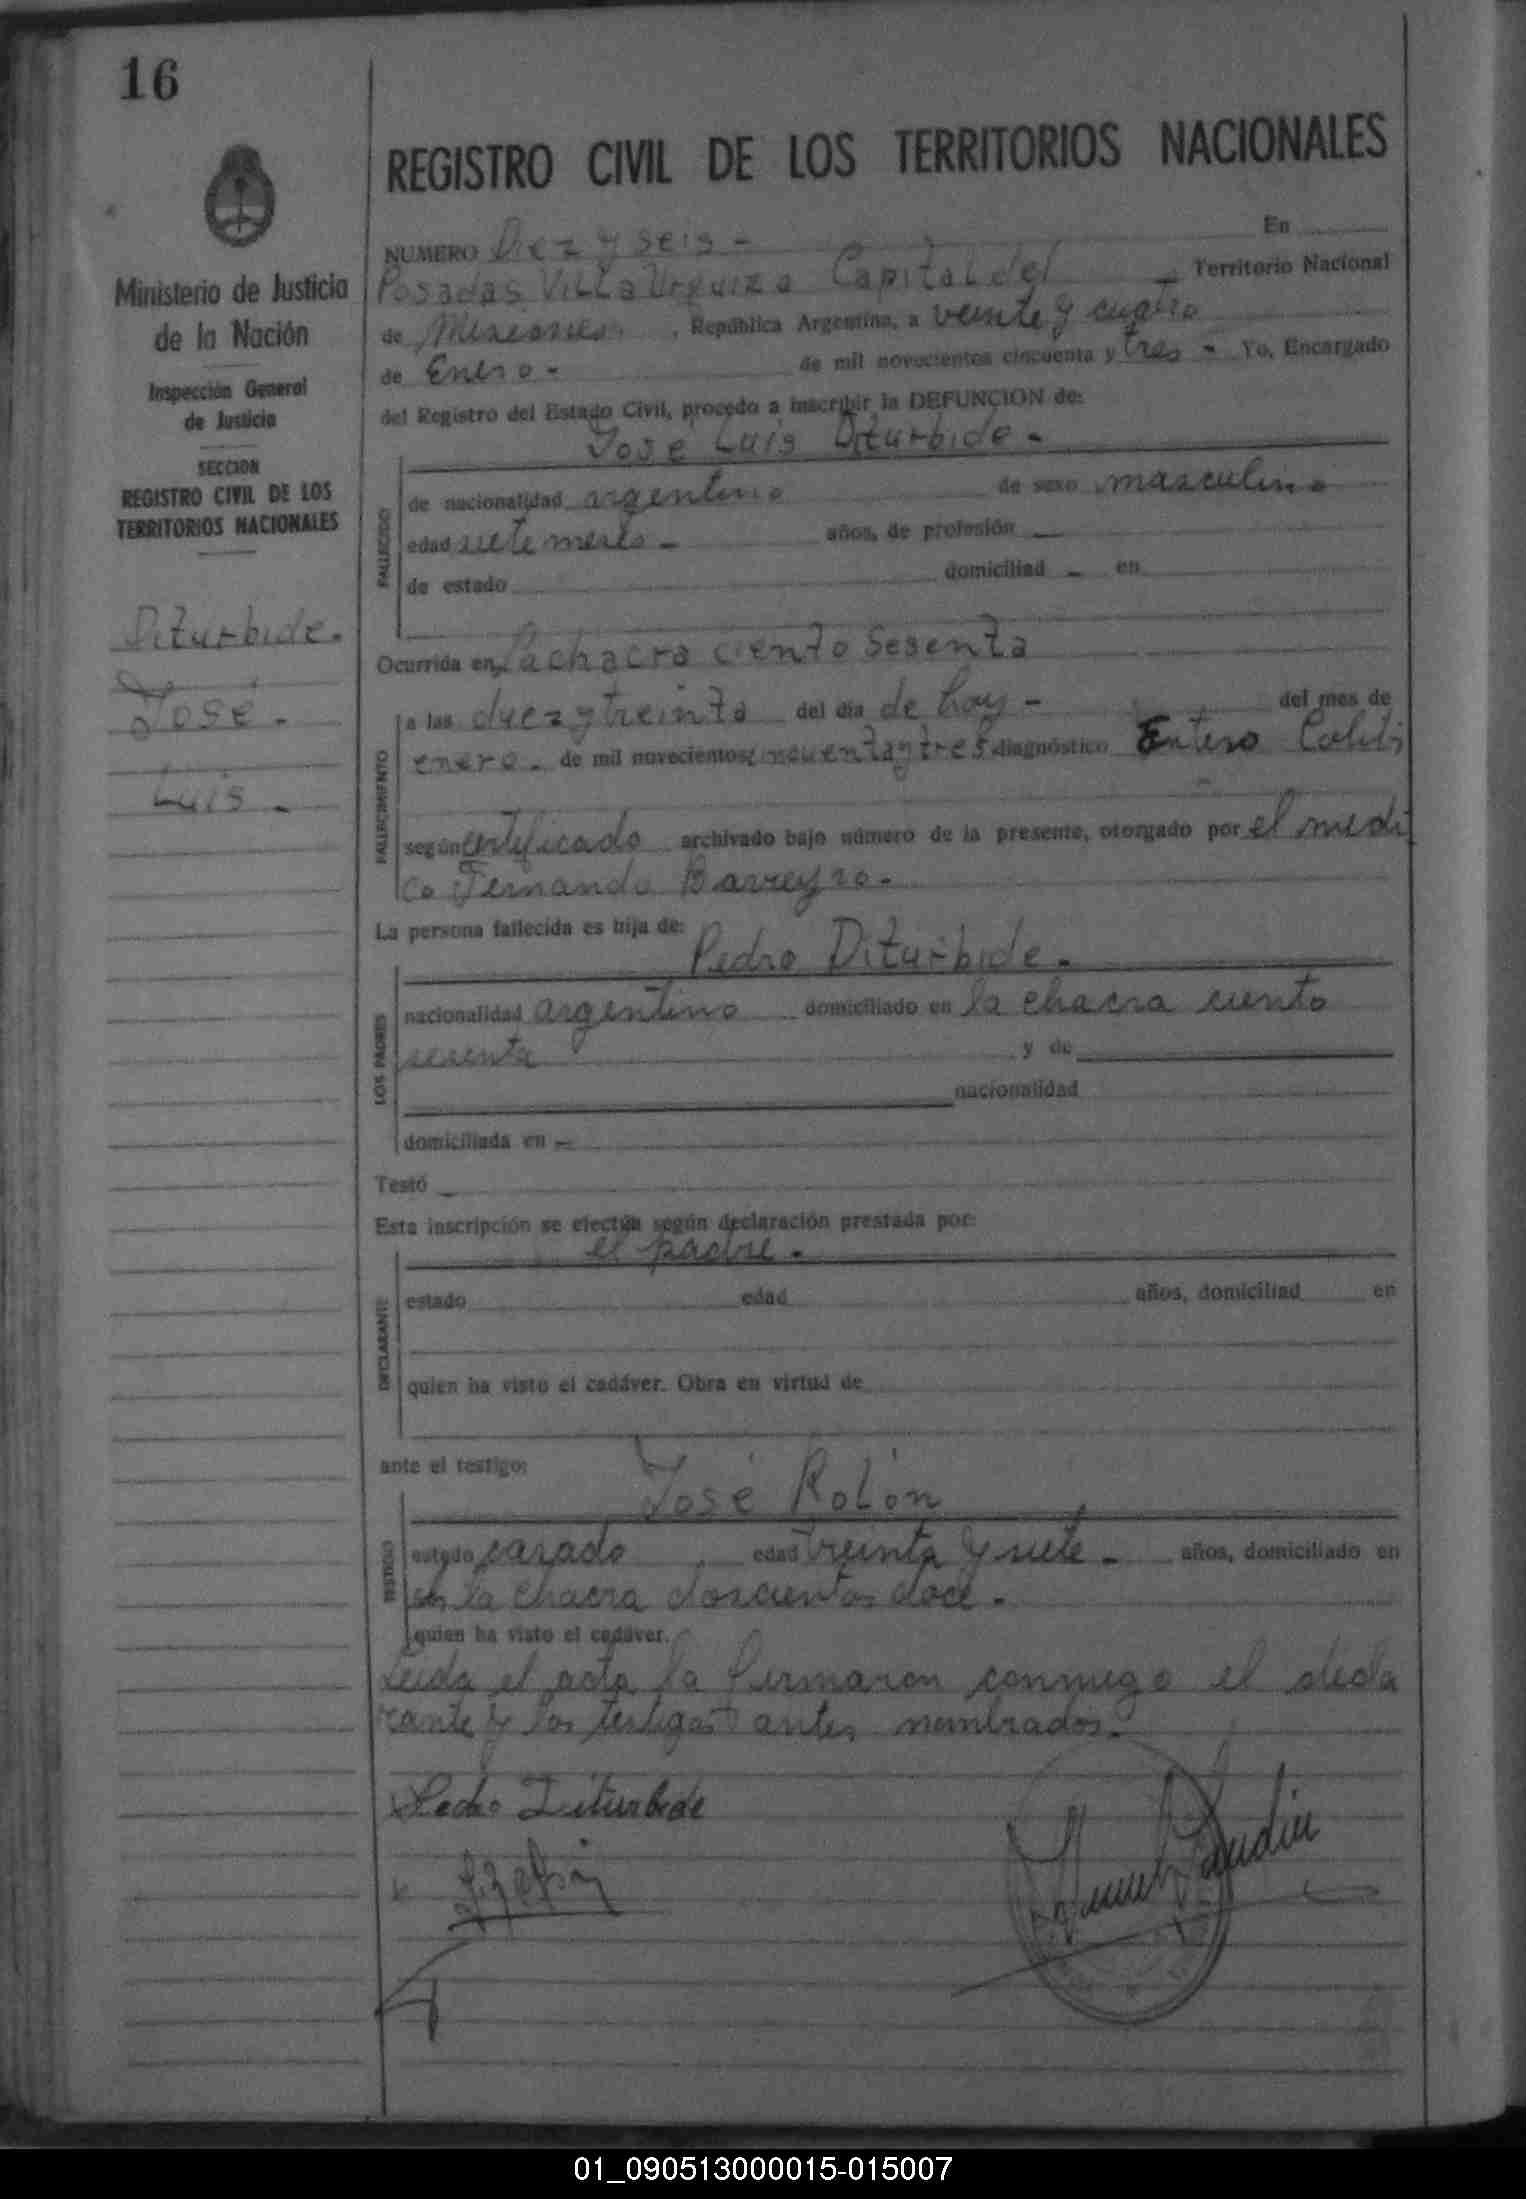 16
Ministerio de Justicia
de la Nación
Inspección General
de Justicia
SECCION
REGISTRO CIVIL DE LOS
TERRITORIOS NACIONALES
Diturbide.
José.
Luis.
REGISTRO CIVIL DE LOS TERRITORIOS NACIONALES
NUMERO Diez y seis - En
Posadas Villa Urquiza Capital del Territorio Nacional
de Misiones, República Argentina, a veinte y cuatro
de Enero. de mil novecientos cincuenta y tres - Yo, Encargado
del Registro del Estado Civil, procedo a inscribir la DEFUNCION de:
José Luis Diturbide -
FALLECIDO
de nacionalidad argentino de sexo masculino
edad siete meses - años, de profesión -
de estado domiciliad - en
Ocurrida en la chacra ciento sesenta
FALLECIMIENTO
a las diez y treinta del día de hoy - del mes de
enero. de mil novecientos cincuenta y tres diagnóstico Entero Colitis
según certificado archivado bajo número de la presente, otorgado por el médi
co Fernando Barreyro.
La persona fallecida es hija de:
Pedro Diturbide.
LOS PADRES
nacionalidad argentino domiciliado en la chacra ciento
sesenta y de
nacionalidad
domiciliada en -
Testó -
Esta inscripción se efectúa según declaración prestada por:
el padre.
DECLARANTE
estado edad años, domiciliad en
quien ha visto el cadáver. Obra en virtud de
ante el testigo:
José Rolón
TESTIGO
estado casado edad treinta y siete - años, domiciliado en
en la chacra doscientos doce.
quien ha visto el cadáver.
Leida el acta la firmaron conmigo el decla
rante y los testigos antes nombrados.
Pedro Diturbide
01_090513000015-015007